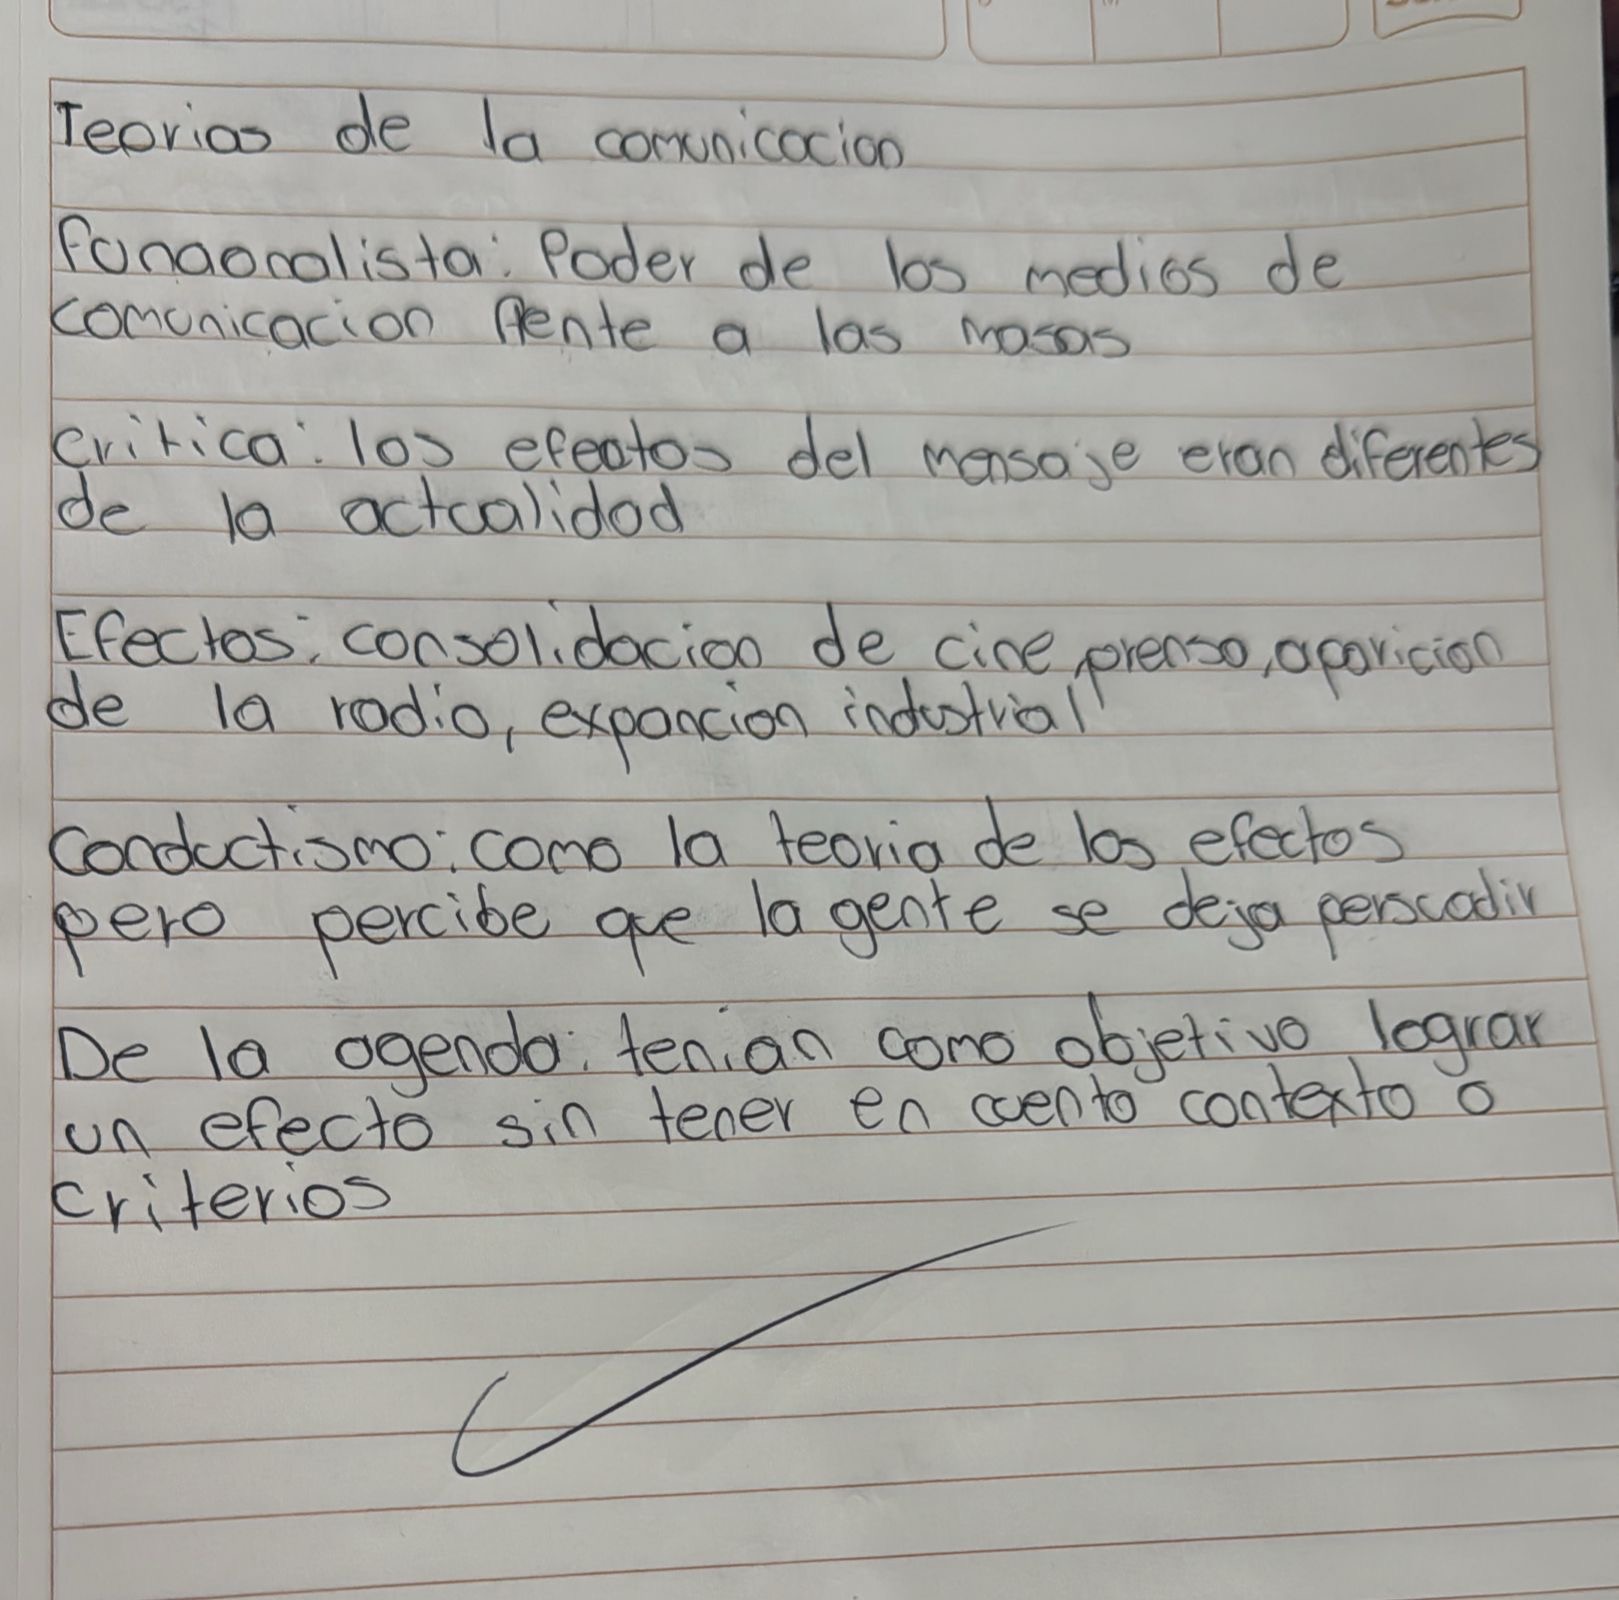 Teorias de la comunicacion
funcionalista: Poder de los medios de
comunicacion frente a las masas
critica: los efectos del mensaje eran diferentes
de la actualidad
Efectos: consolidacion de cine, prensa, aparicion
de la radio, expancion industrial
Conductismo: como la teoria de los efectos
pero percibe que la gente se deja persuadir
De la agenda: tenian como objetivo lograr
un efecto sin tener en cuenta contexto o
criterios